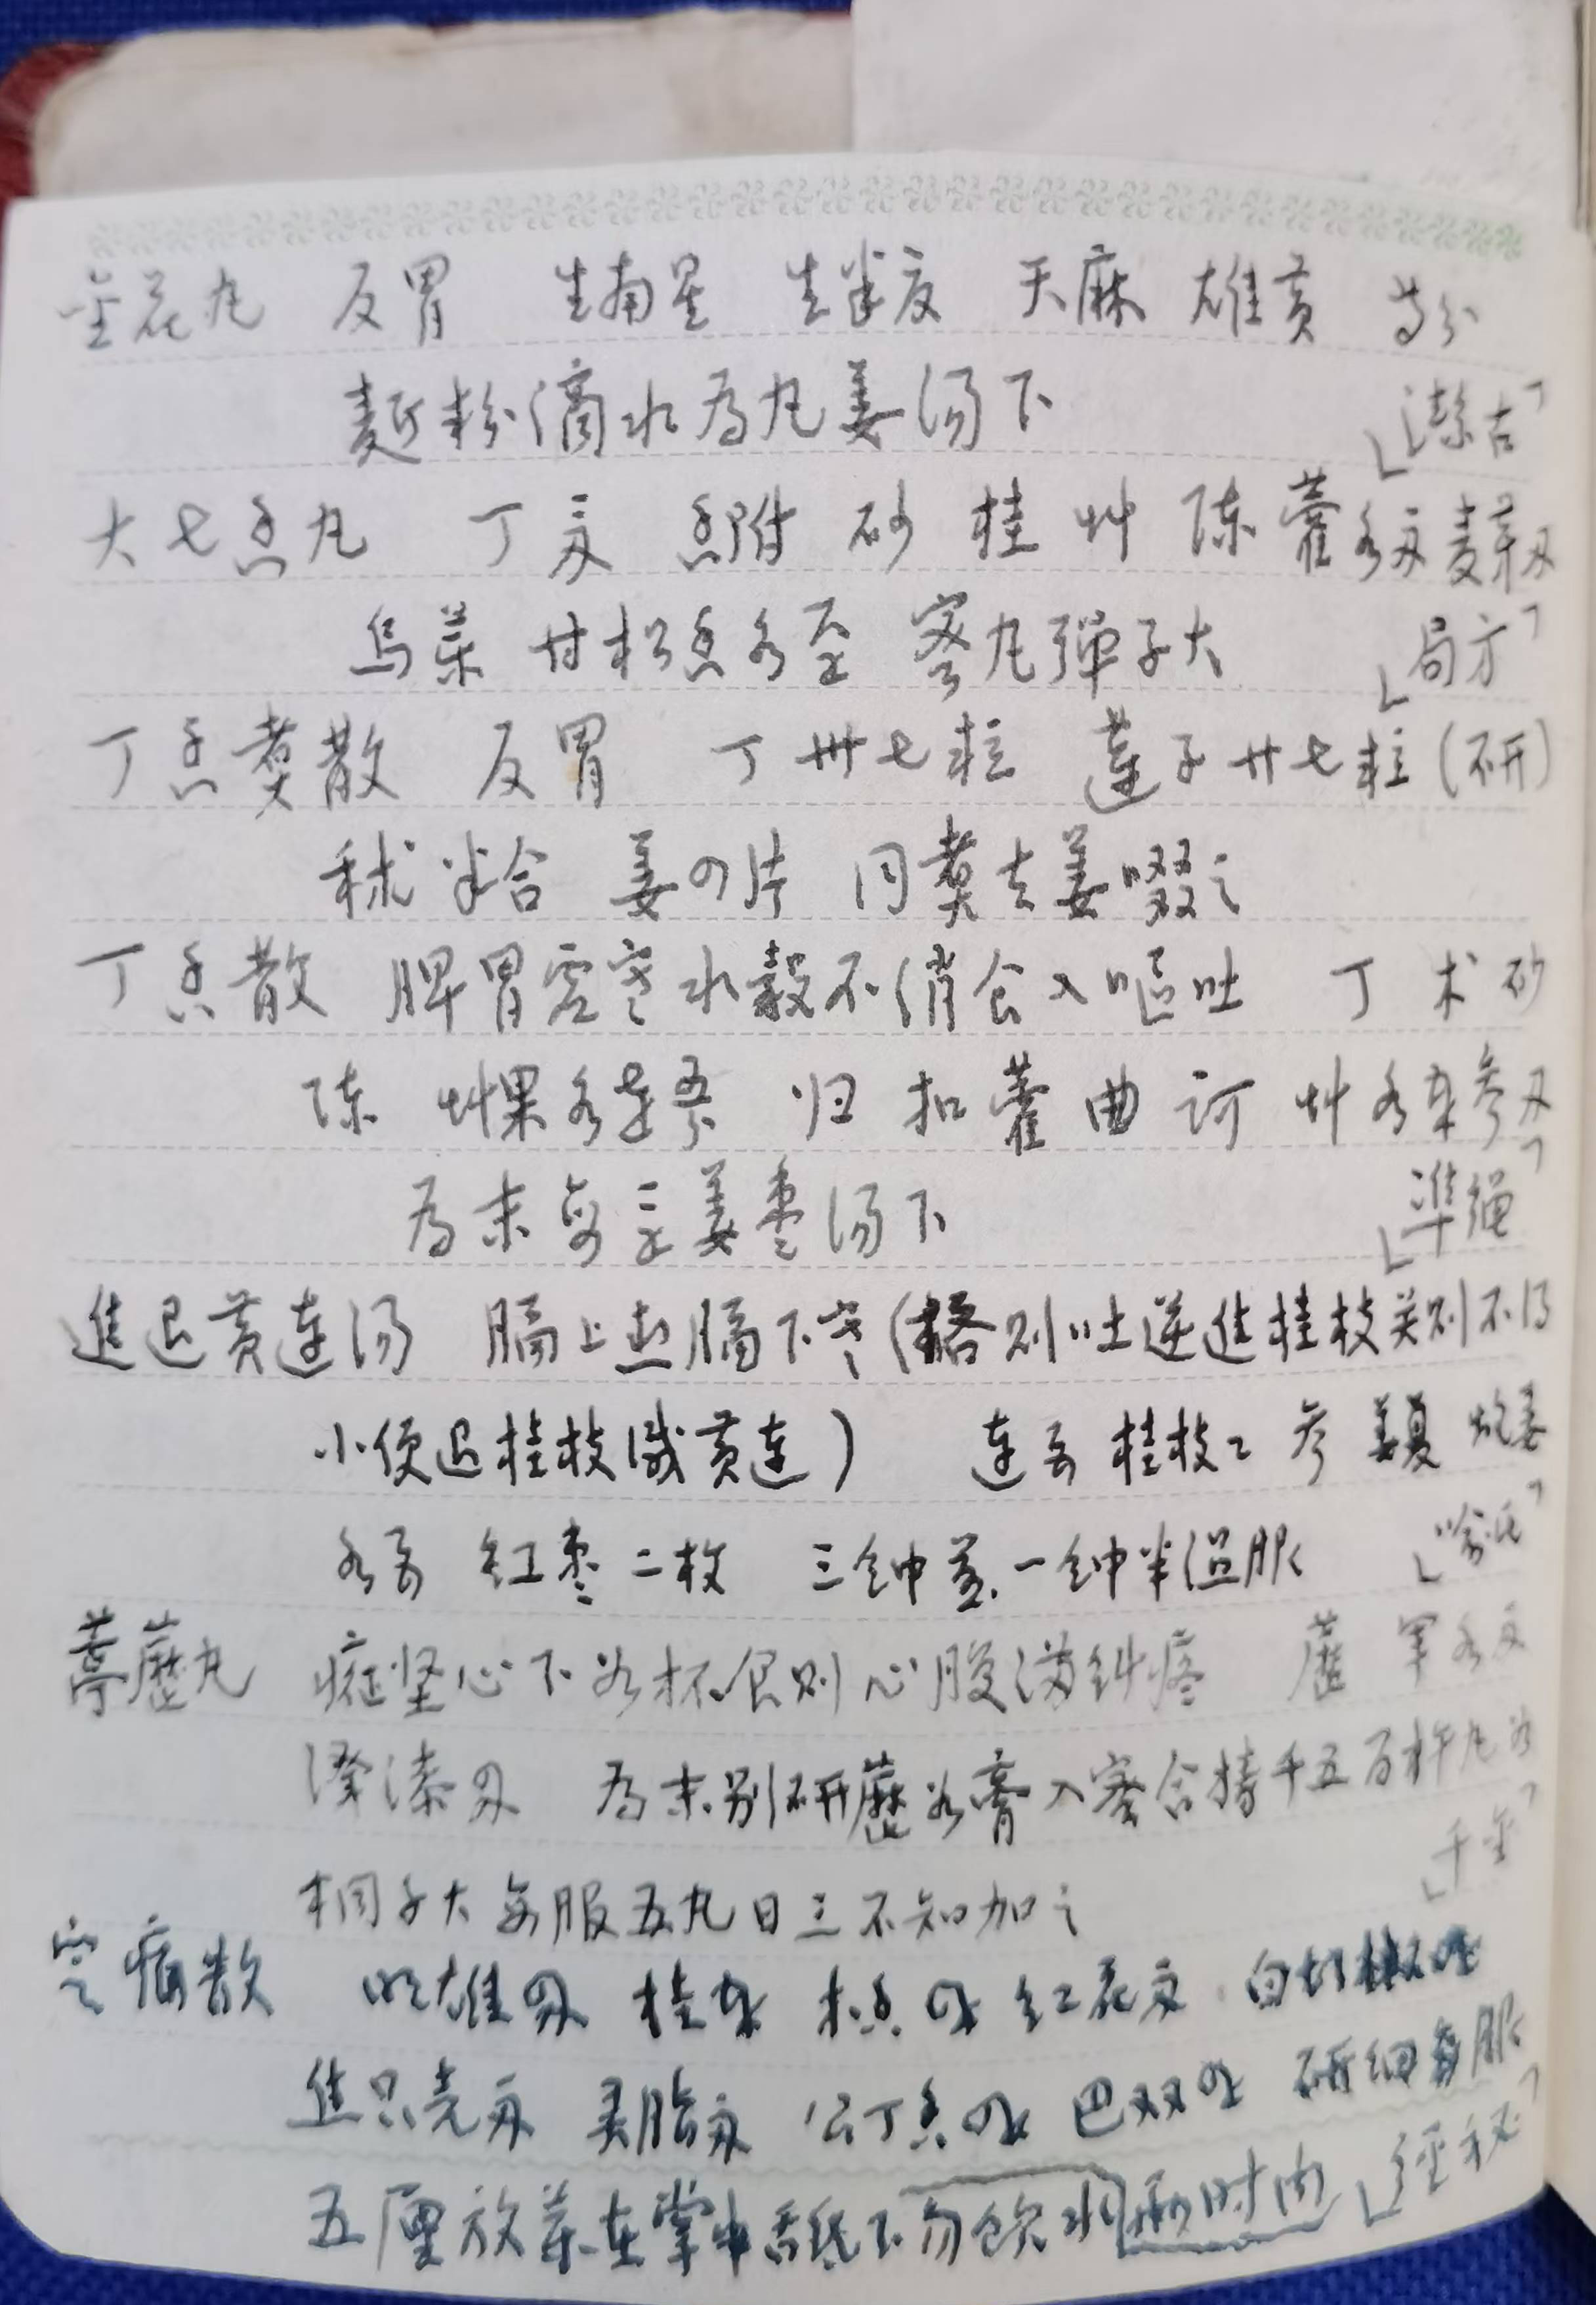 金花丸 反胃 生南星 生半夏 天麻 雄黄 等分
麵粉滴水为丸姜汤下 「潔古」
大七香丸 丁 香附 砂 桂 艸 陈 藿各 麦芽
乌药 甘松香各 蜜丸弹子大 「局方」
丁香煮散 反胃 丁卅七粒 莲子廿七粒(研)
秫半合 姜四片 同煮去姜啜之
丁香散 脾胃虚寒水穀不消食入嘔吐 丁 术 砂
陈 艸果各 归 扣 藿 曲 诃 艸各 参
为末每三姜枣汤下 「準绳」
進退黄连汤 膈上热膈下寒(格则吐逆進桂枝关则不得
小便退桂枝減黄连) 连 桂枝 参 姜夏 炮姜
各 红枣二枚 三钟煎一钟半温服 「喻氏」
葶藶丸 癥坚心下如杯食则心腹满纠疼 藶 军各
澤漆 为末别研藶如膏入蜜合捣千五百杵丸如
桐子大每服五丸日三不知加之 「千金」
定痛散 明雄 桂 木香 红花 白胡椒
焦只壳 灵脂 公丁香 巴双 研细每服
五厘放药在掌中舌舐下勿飲水 时内 「经秘」